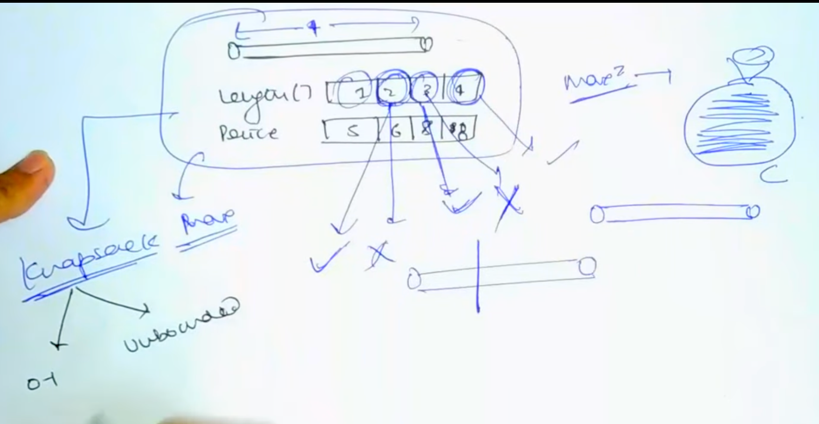 4
Length[] 1 2 3 4
Price 5 6 8 8
max²
C
Knapsack
max
unbounded
0-1